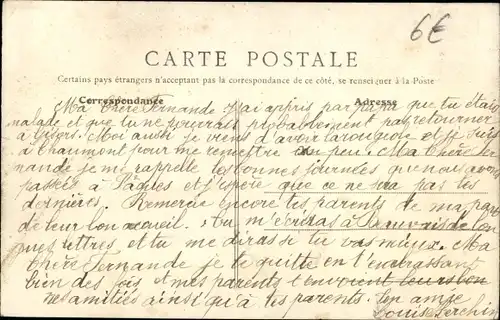 6€
CARTE POSTALE
Certains pays étrangers n'acceptant pas la correspondance de ce côté, se renseigner à la Poste
Correspondance Adresse
Ma Chère Fernande J'ai appris par que tu étais
malade et que tu ne pourrais probablement pas retourner
à Gisors. Moi aussi je viens d'avoir la rougeole et je suis
à Chaumont pour me remettre un peu. Ma Chère Fer-
nande je me rappelle les bonnes journées que nous avons
passées à Pâques et j'espère que ce ne sera pas les
dernières. Remercie encore tes parents de ma part
de leur bon accueil. Tu m'écriras à Beauvais de longues
lettres et tu me diras si tu vas mieux. Ma
Chère Fernande je te quitte en t'embrassant
bien des fois et mes parents t'envoient leurs bon
nes amitiés ainsi qu'à tes parents. Ton amie
Louise